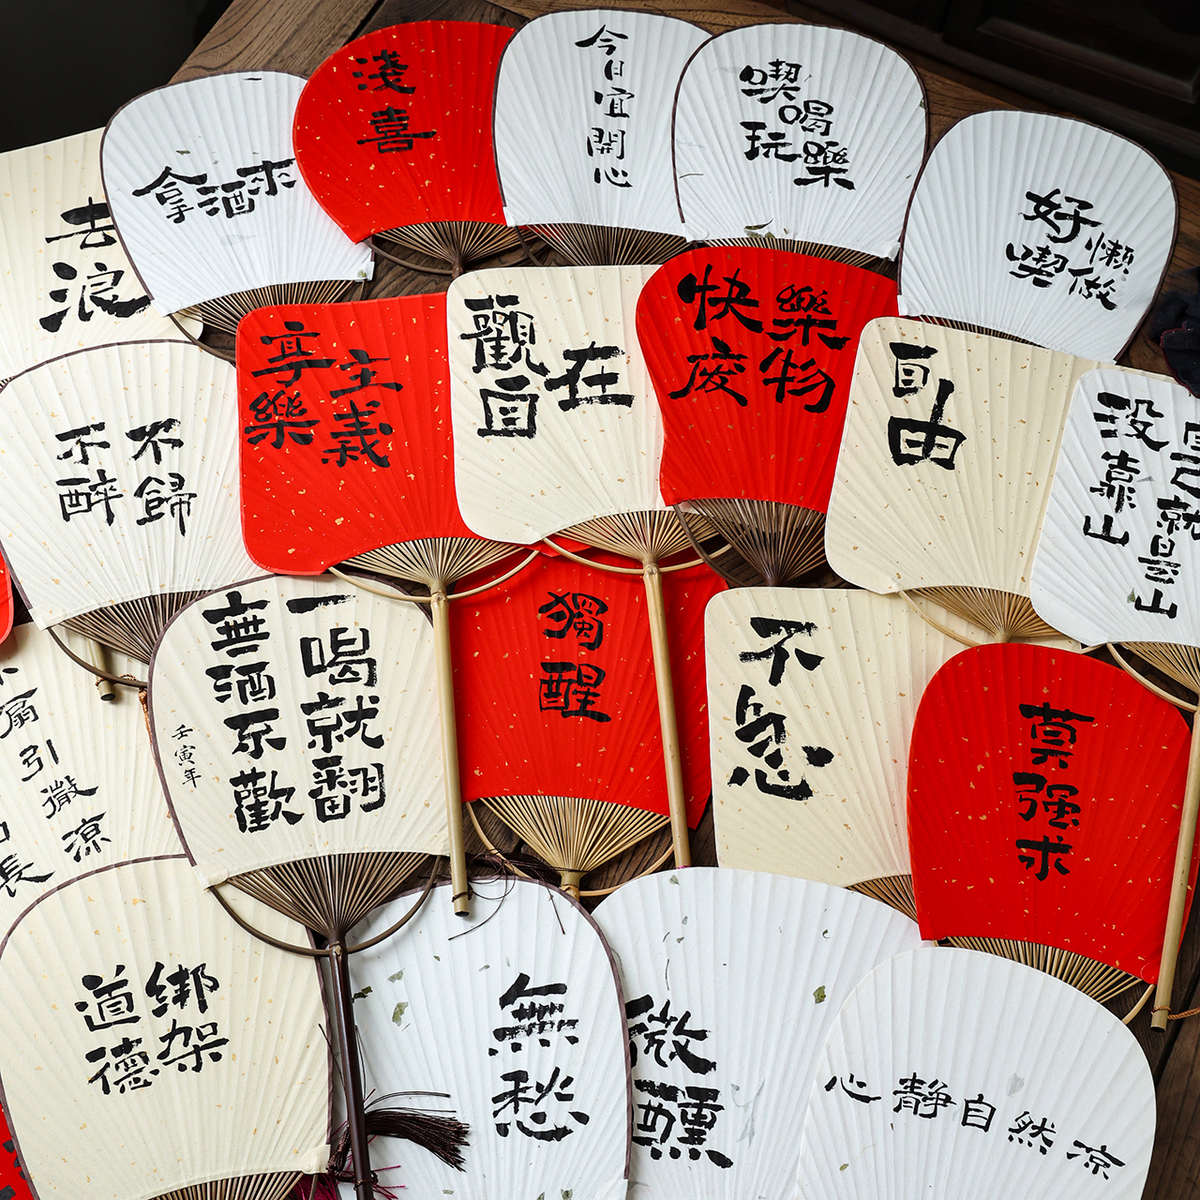 去浪
拿酒來
淺喜
今日宜開心
喫喝
玩樂
好喫
懶做
不醉
不歸
享樂
主義
觀自
在
快樂
废物
自由
没靠山
就是山
一喝就翻
無酒不歡
壬寅年
獨醒
不急
莫强求
扇引微涼
長
道德
綁架
無愁
微醺
心静自然凉